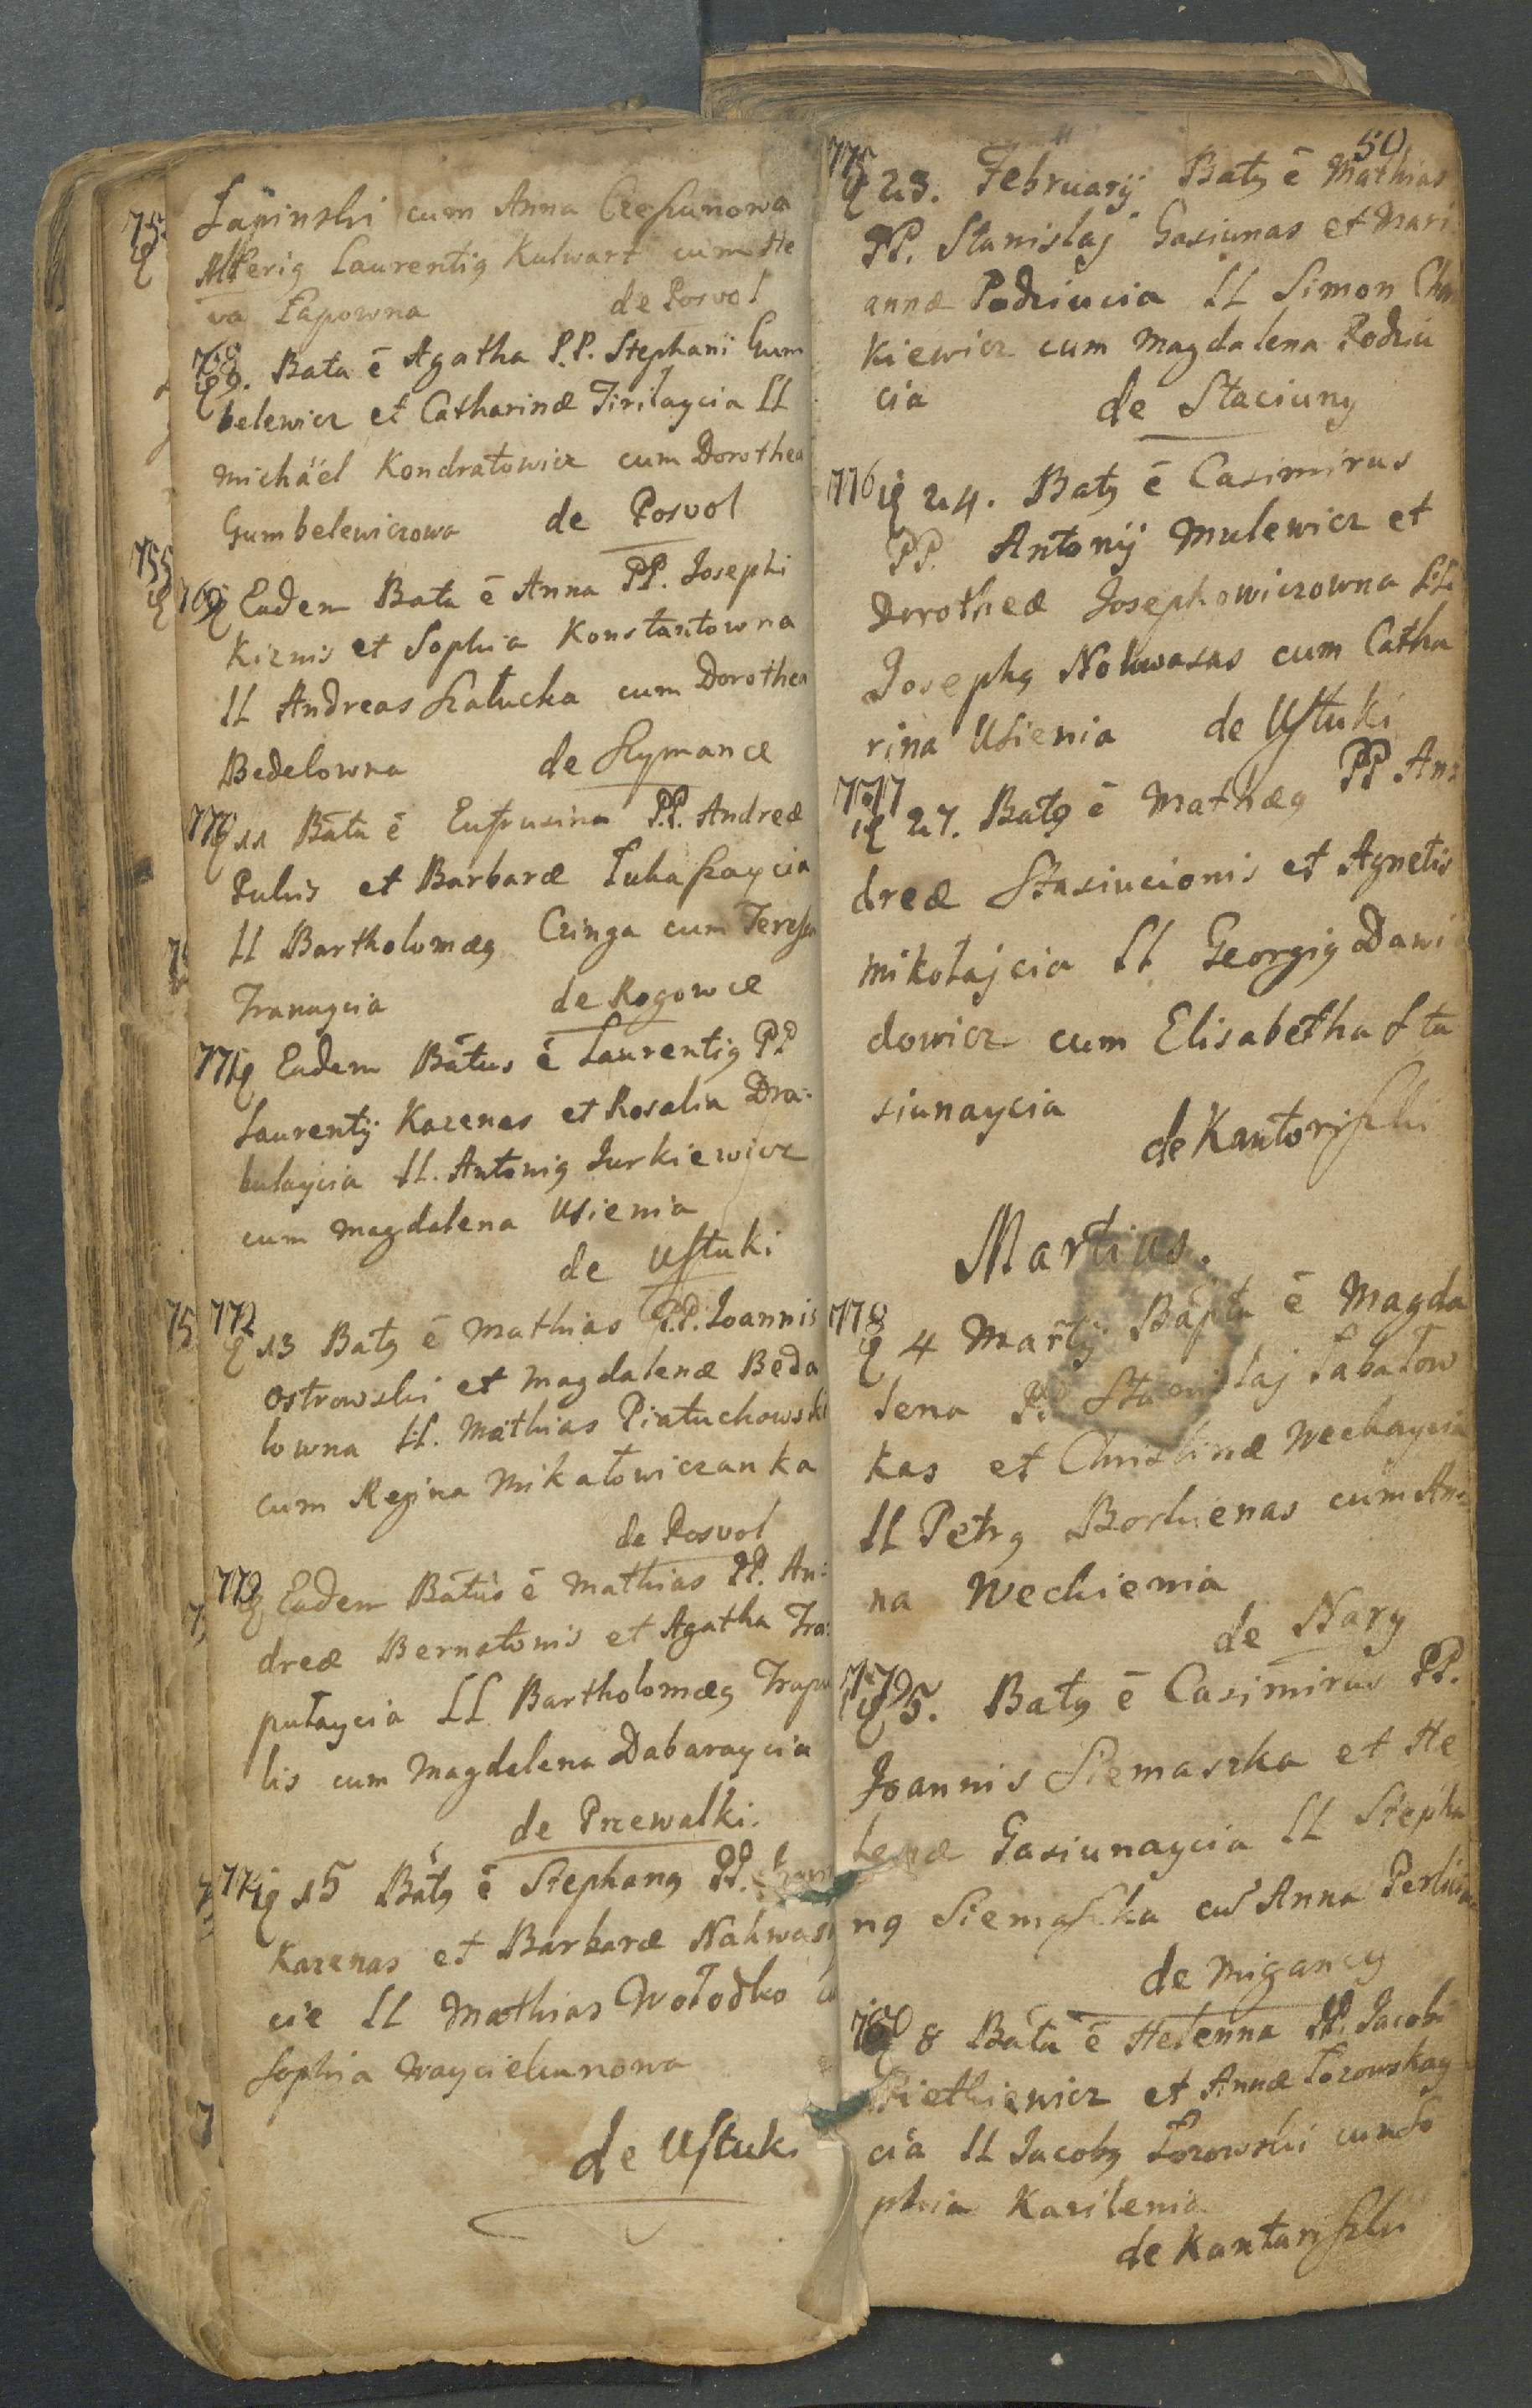 Łapinski cum Anna
Alterig Laurentig Kulwart cum He
va Łapowna de Posvol
768
9. Bata ē Agatha P.P. Stephani Gum
belewicz et Catharinæ Tirilaycia LL
Michäel Kondratowicz cum Dorothea
Gumbelewiczowa de Posvol
769 Eadem Bata ē Anna PP. Josephi
Kiznis et Sophia Konstantowna
LL Andreas Szałucka cum Dorothea
Bedelowna de Szymance
770 11 Bata ē Eufrusina P.P. Andreæ
Pulus et Barbaræ Lukaszaycia
LL Bartholomæg Czinga cum Teressa
Tranaycia de Rogowce
771 Eadem Batus ē Laurentig PP
Laurentij Kazenas et Rosalia Dra:
bulaycia LL. Antonig Jurkiewicz
cum Magdalena Usienia
de Ustuki
772
13 Batg ē Mathias P.P. Joannis
Ostrowski et Magdalenæ Beda
lowna LL. Mathias Piatuchowski
cum Regina Mikałowiczanka
de Posvol
773 Eadem Batus ē Mathias PP. An:
dreæ Bernatonis et Agatha Tra:
pułaycia LL Bartholomæg Trapu
lis cum Magdalena Dabaraycia
de Przewalki.
774 15 Batg ē Stephang PP.
Kazenas et Barbaræ Nakwasi
cie LL Mathias Wołodko cu
Sophia Wayciekunowa
de Ustuki
50
775
23. Februarij Batg ē Mathias
PP. Stanislaj Gasiunas et Mari
annæ Podziucia LL Simon Cha
kiewicz cum Magdalena Podziu
cia de Staciuny
776 24. Batg ē Casimirus
PP. Antonij Mulewicz et
Dorotheæ Josephowiczowna LL
Josephg Nokwasas cum Catha
rina Usienia de Ustuki
777
27. Batg ē Mathæg PP An:
dreæ Stasiucionis et Agnetis
Mikołajcia LL Georgig Dawi
dowicz cum Elisabetha Sta
siunaycia
de Kantoriszki
Martius.
778
4 Martij Bapta ē Magda
lena PP Stanislaj Sabałow
kas et Christinæ Weckaycia
LL Petrg Borkienas cum An:
na Weckienia
de Nary
779
5. Batg ē Casimirus PP.
Joannis Siemaszka et He
lenæ Gasiunaycia LL Stepha
ng Siemaszka cu Anna
de Migancy
780
8 Bata ē Helenna PP. Jacobi
Pietkiewicz et Annæ Łozowskay
cia LL Jacobg Łozowski cum So
phia Kazilenia
de Kantariszki